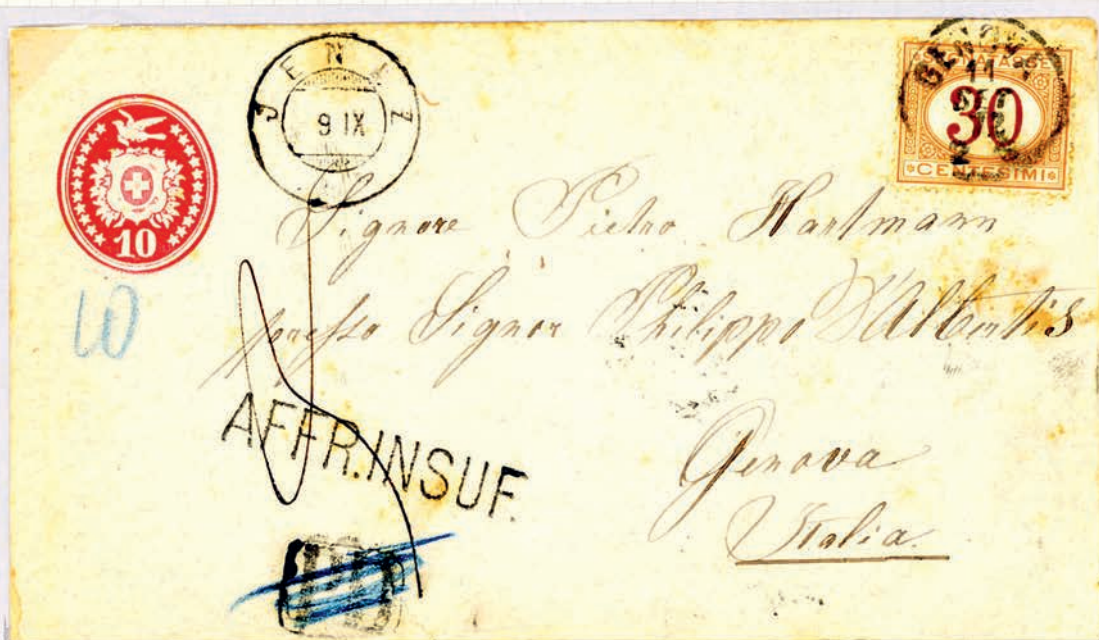 JENAZ
9 IX
GENOVA
11
SEGNATASSE
30
CENTESIMI
10
10
Signore Pietro Hartmann
presso Signor Philippo D'Albertis
AFFR.INSUF.
Genova
Italia.